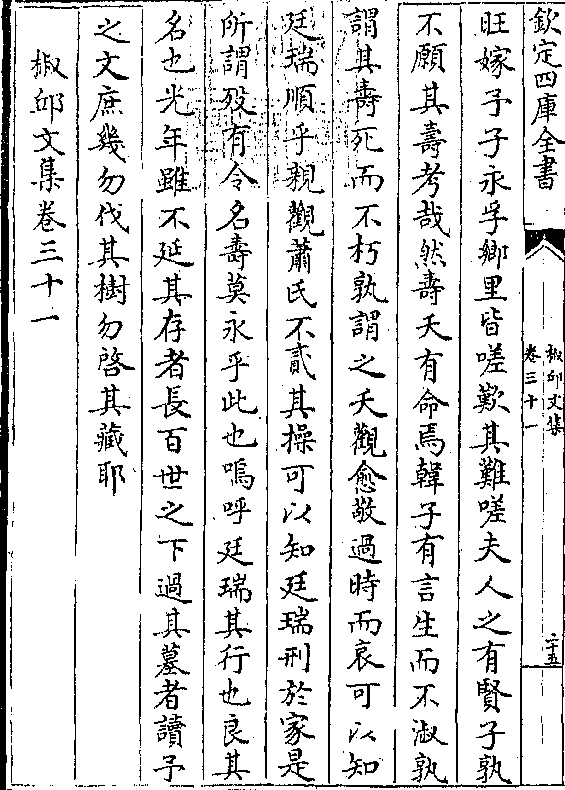 欽定四庫全書
椒邱文集
卷三十一
二十五
旺嫁予子永孚鄉里皆嗟歎其難嗟夫人之有賢子孰
不願其壽考哉然壽夭有命焉韓子有言生而不淑孰
謂其壽死而不朽孰謂之夭觀愈敬過時而哀可以知
廷瑞順乎親觀蕭氏不貳其操可以知廷瑞刑於家是
所謂歿有令名壽莫永乎此也嗚呼廷瑞其行也良其
名也光年雖不延其存者長百世之下過其墓者讀予
之文庶幾勿伐其樹勿啓其藏耶
椒邱文集卷三十一